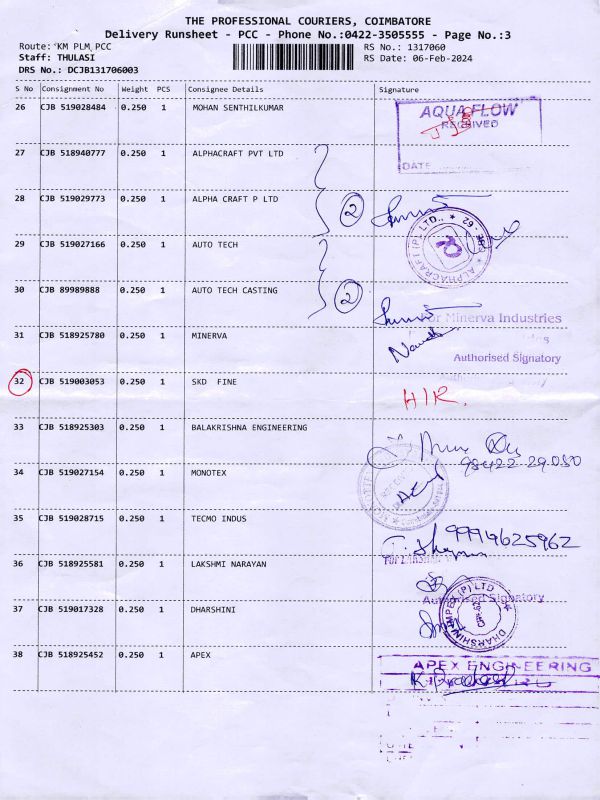 THE PROFESSIONAL COURIERS, COIMBATORE
Delivery Runsheet - PCC - Phone No.:0422-3505555 - Page No.:3
Route: KM PLM PCC
RS No.: 1317060
Staff: THULASI
RS Date: 06-Feb-2024
DRS No.: DCJB131706003
S No Consignment No Weight PCS Consignee Details Signature
26 CJB 519028484 0.250 1 MOHAN SENTHILKUMAR
AQUA FLOW
RECEIVED
DATE
27 CJB 518940777 0.250 1 ALPHACRAFT PVT LTD
28 CJB 519029773 0.250 1 ALPHA CRAFT P LTD 2
ALPHACRAFT (P) LTD.,
29 CJB 519027166 0.250 1 AUTO TECH
30 CJB 89989888 0.250 1 AUTO TECH CASTING 2
For Minerva Industries
31 CJB 518925780 0.250 1 MINERVA
Authorised Signatory
32 CJB 519003053 0.250 1 SKD FINE
33 CJB 518925303 0.250 1 BALAKRISHNA ENGINEERING
98422 29080
34 CJB 519027154 0.250 1 MONOTEX
35 CJB 519028715 0.250 1 TECMO INDUS
9994625962
36 CJB 518925581 0.250 1 LAKSHMI NARAYAN
Authorised Signatory
37 CJB 519017328 0.250 1 DHARSHINI
DHARSHINI IMPEX (P) LTD
38 CJB 518925452 0.250 1 APEX
APEX ENGINEERING